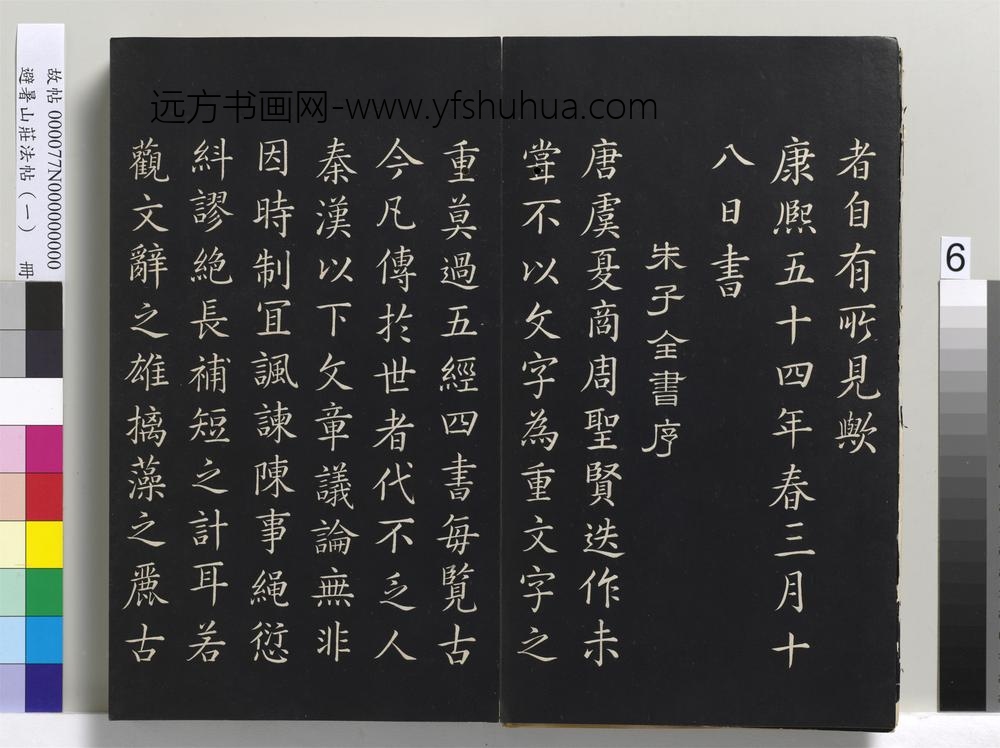 者自有所見歟
康熙五十四年春三月十
八日書
朱子全書序
唐虞夏商周聖賢迭作未
嘗不以文字為重文字之
重莫過五經四書每覽古
今凡傳於世者代不乏人
秦漢以下文章議論無非
因時制宜諷諫陳事繩愆
糾謬絕長補短之計耳若
觀文辭之雄摛藻之麗古
远方书画网-www.yfshuhua.com
故帖 000077N000000000
避暑山莊法帖（一） 冊
6